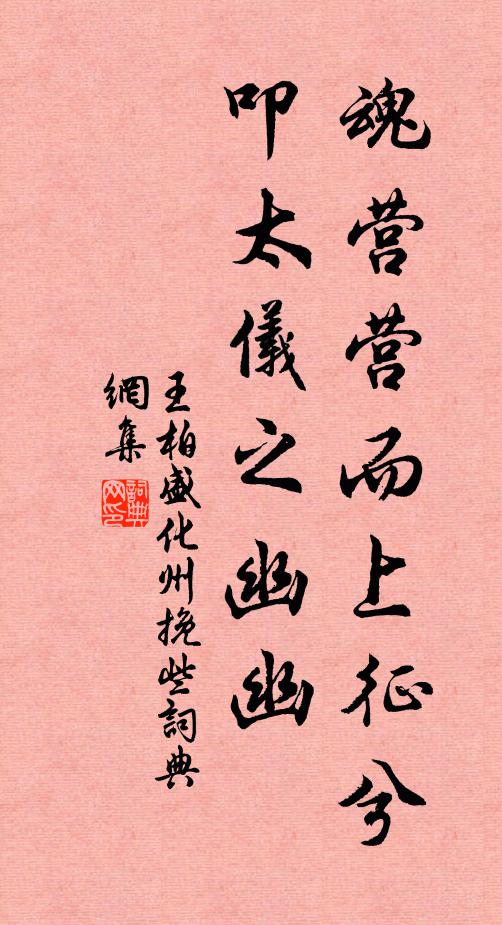 魂营营而上征兮
叩太儀之幽幽
王柏盛化州挽些詞典
網集
詞典
网印